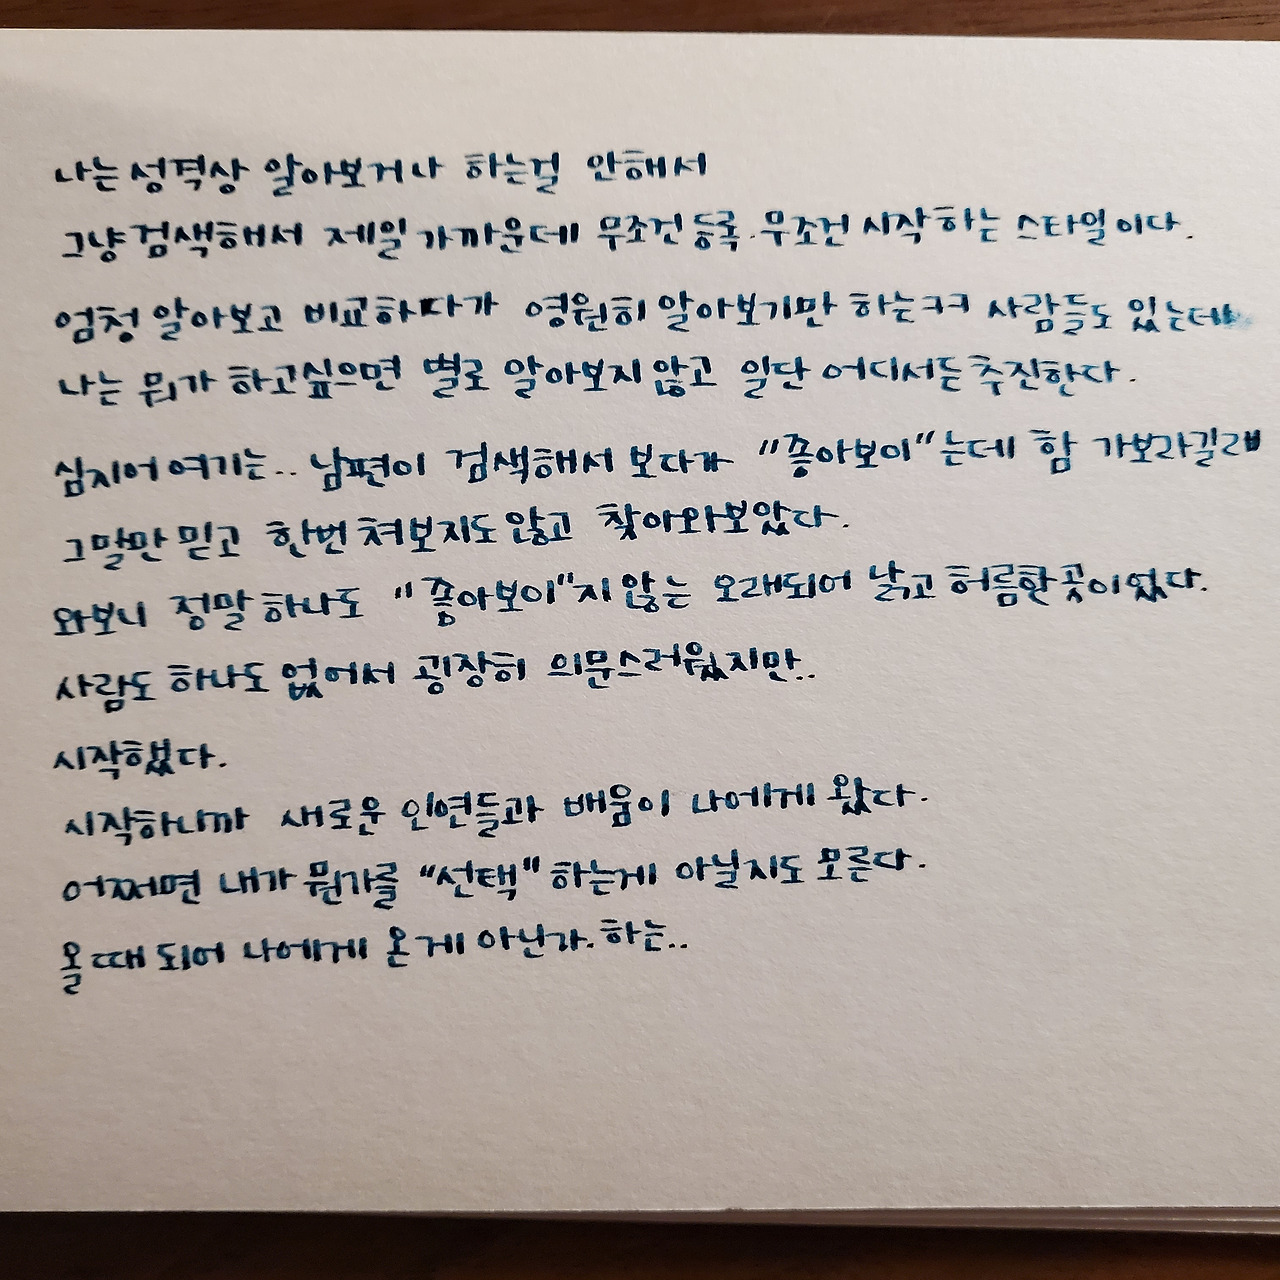 나는 성격상 알아보거나 하는걸 안해서
그냥 검색해서 제일 가까운데 무조건 등록. 무조건 시작하는 스타일이다.
엄청 알아보고 비교하다가 영원히 알아보기만 하는ㅋㅋ 사람들도 있는데
나는 뭐가 하고싶으면 별로 알아보지 않고 일단 어디서든 추진한다.
심지어 여기는.. 남편이 검색해서 보다가 "좋아보이"는데 함 가보라길래
그말만 믿고 한번 쳐보지도 않고 찾아와보았다.
와보니 정말 하나도 "좋아보이"지 않는 오래되어 낡고 허름한 곳이었다.
사람도 하나도 없어서 굉장히 의문스러웠지만..
시작했다.
시작하니까 새로운 인연들과 배움이 나에게 왔다.
어쩌면 내가 뭔가를 "선택"하는게 아닐지도 모른다.
올때 되어 나에게 온게 아닌가. 하는..